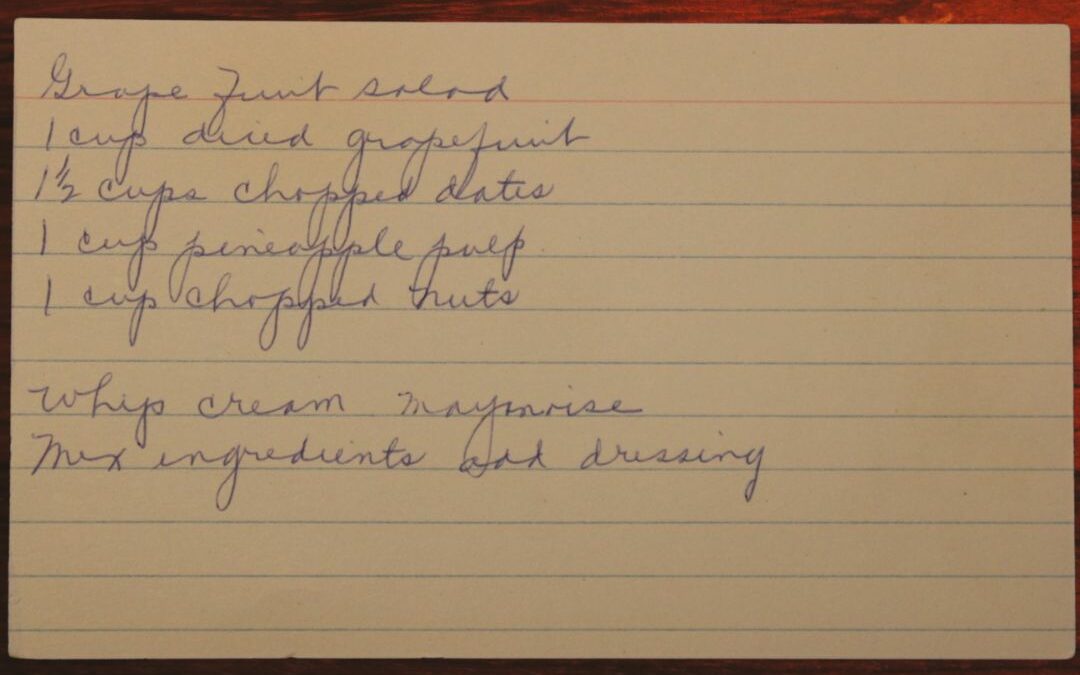 Grape Fruit salad
1 cup diced grapefruit
1 1/2 cups chopped dates
1 cup pineapple pulp
1 cup chopped nuts
Whip cream mayonaise
Mix ingredients add dressing